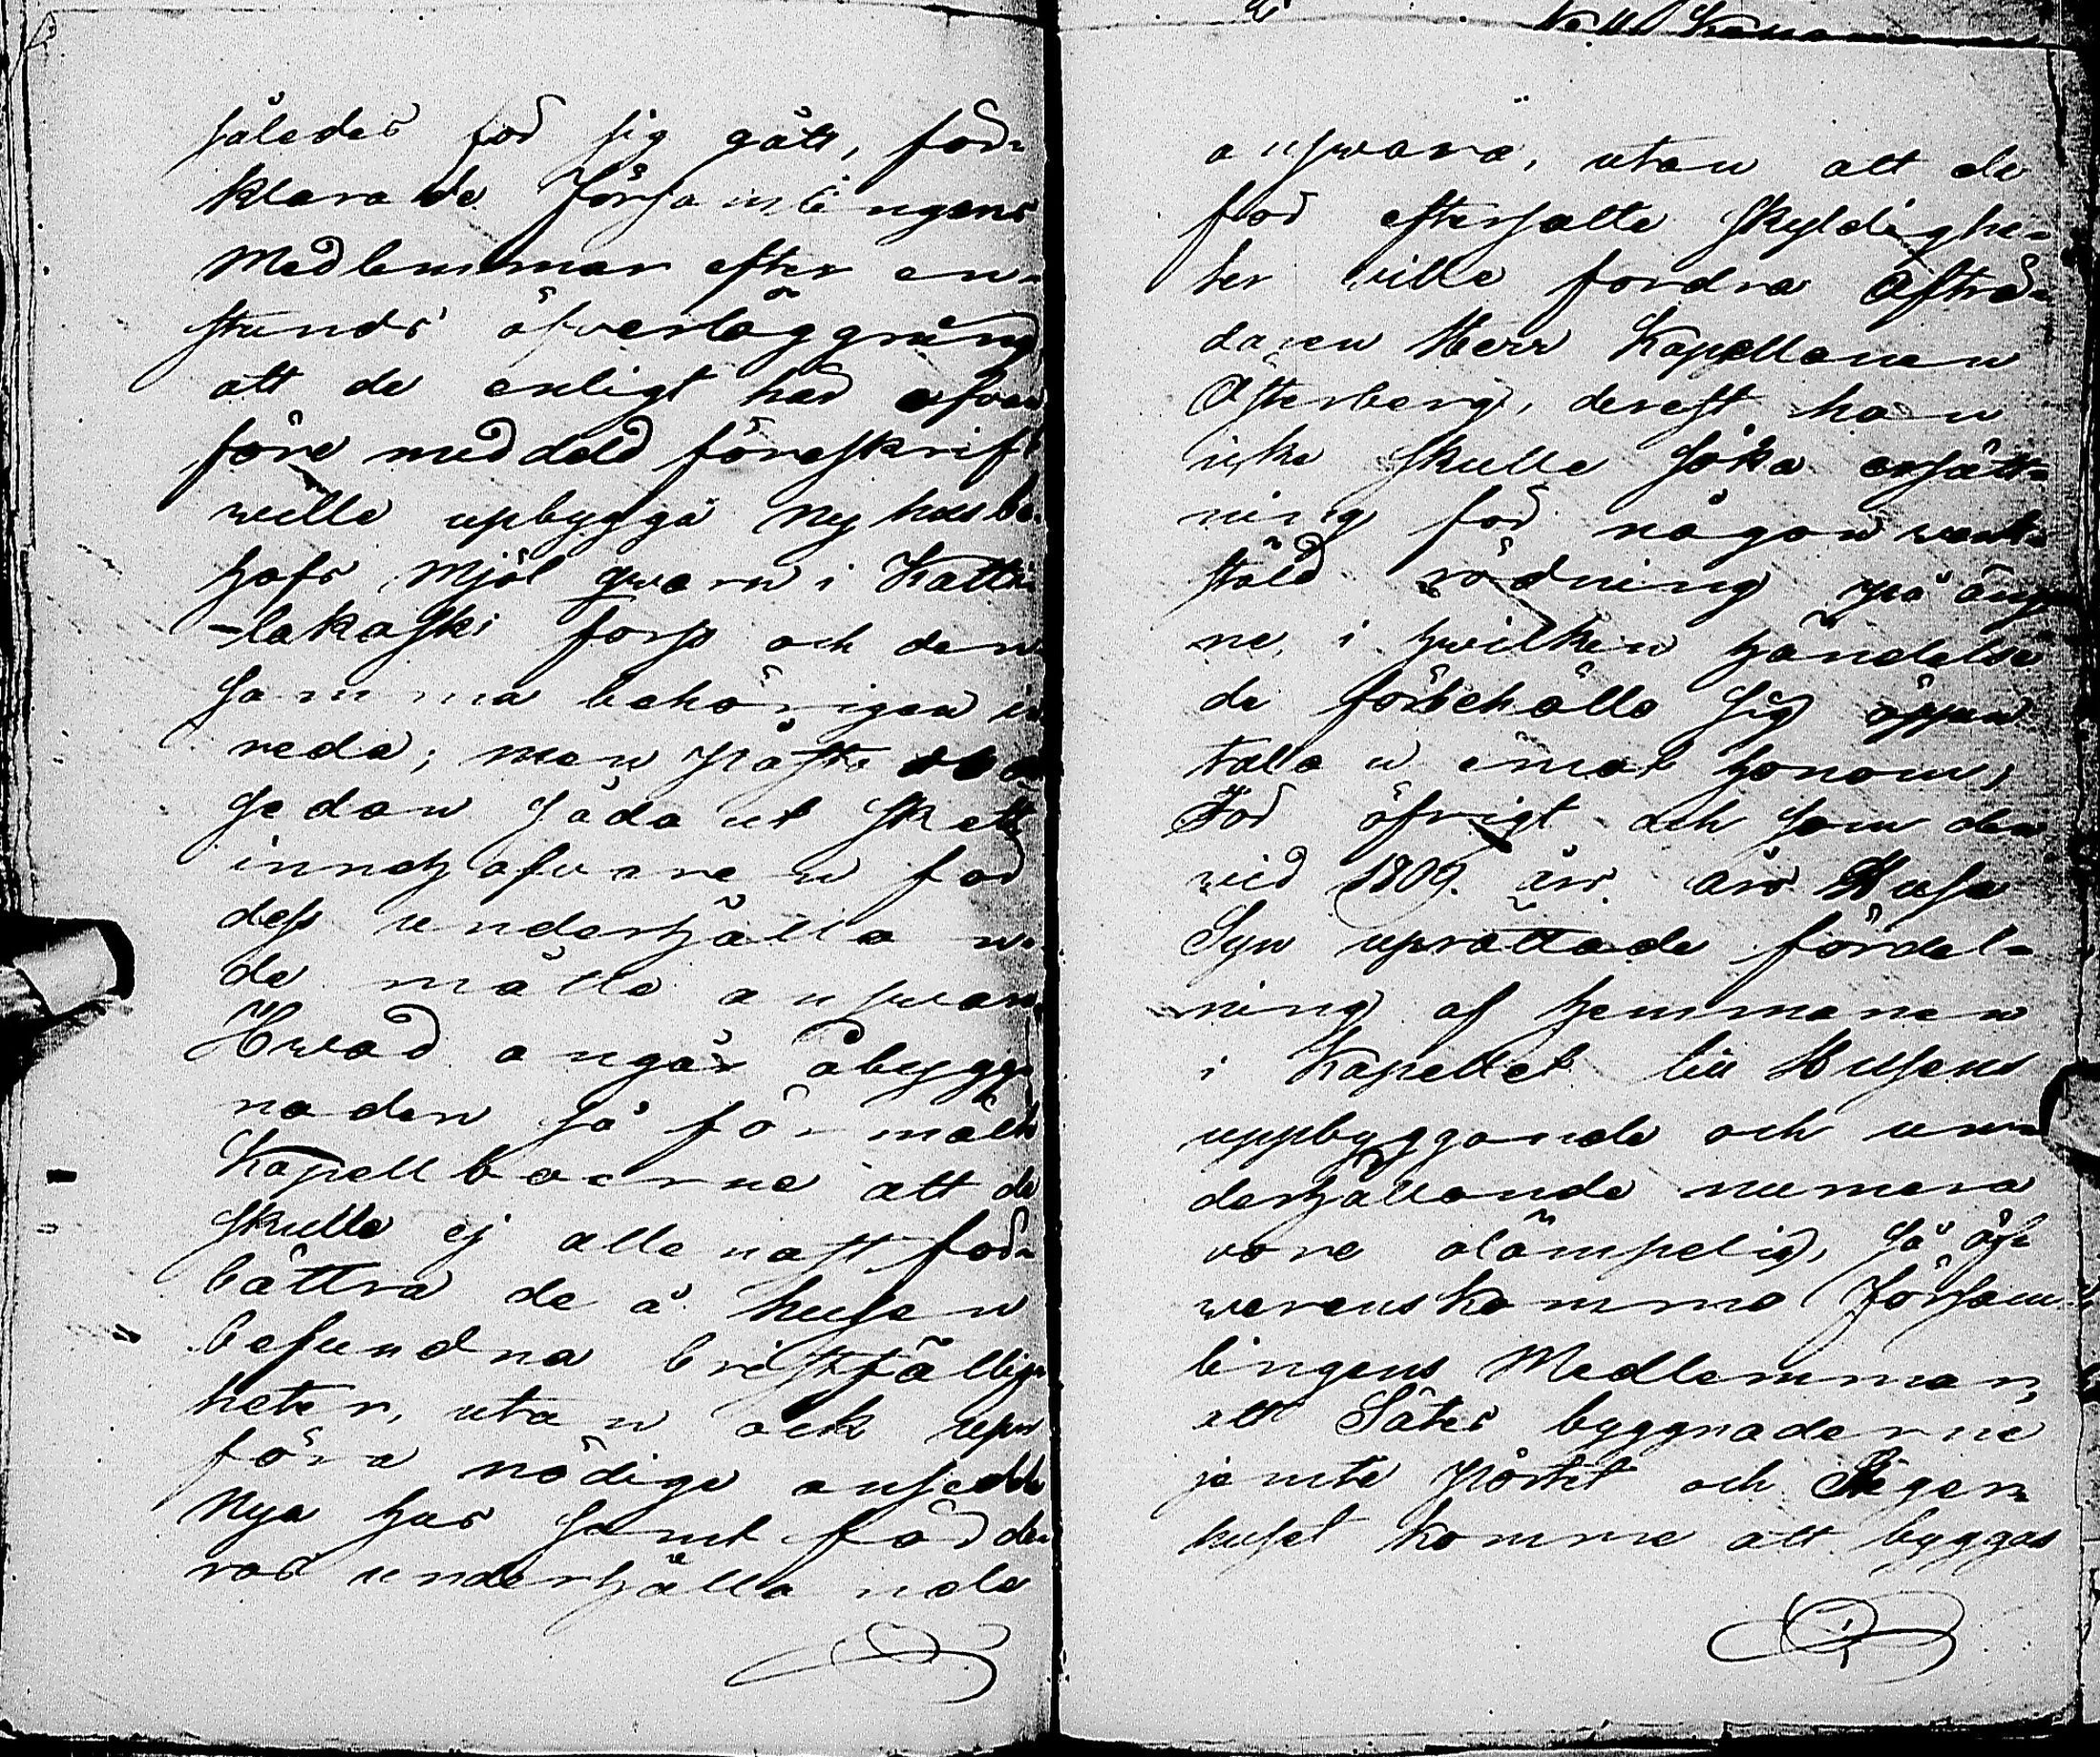 således för sig gått, för-
klarade Församlingens
Medlemmar efter en
stunds öfverläggning
att de enligt här ofvan
före meddeld föreskrift
wille upbygga ny husbe-
hofs Mjöl qwarn i Katti-
-lakoski forss och den
samma behörigen in
reda; men påstå
sedan såda ut skett
innehafvaren för
dess underhållan-
de måtte answara
Hwad angår åbygg-
naden så förmälte
Kapellboerne att de
skulle ej allenast för-
bättra de å husen
befundna bristfällig-
heter, utan ock upp
föra nödige ansedde
Nya hus samt för de-
ras underhållande
answara, utan att de
för eftersatte skyldighe-
ter wille fordra Afträ-
daren Herr Kapellanen
Österberg, derest han
icke skulle söka ersätt-
ning för någon werk-
stäld rödning på äng
ne, i hwilken händelse
de förbehålla sig öppen
talan emot honom,
För öfrigt och som den
wid 1809. års Huse
Syn uprättade fördel-
ning af hemmanen
i Kapellet till Husens
uppbyggande och un-
derhållande numera
vore olämpelig, så öf-
werenskommo Försam-
lingens Medlemmar,
att Sätes byggnaderne
jemte Pörtet och Stegar-
huset komme att byggas